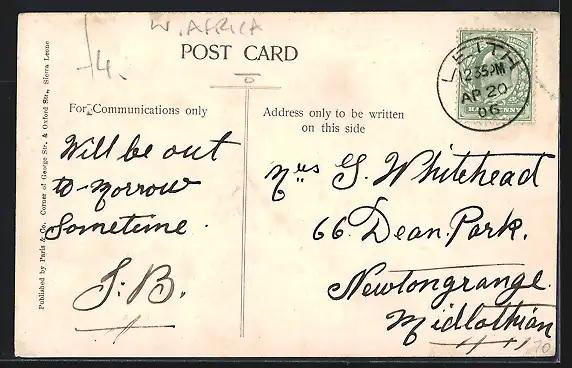 W. AFRICA
/4.
POST CARD
For Communications only
Address only to be written
on this side
LEITH
12.35 PM
AP 20
06
HALFPENNY
Will be out
to-morrow
Sometime.
J. B.
Mrs G. Whitehead
66 Dean Park.
Newtongrange.
Midlothian
Published by Paris & Co. Corner of George Str. & Oxford Str., Sierra Leone
70